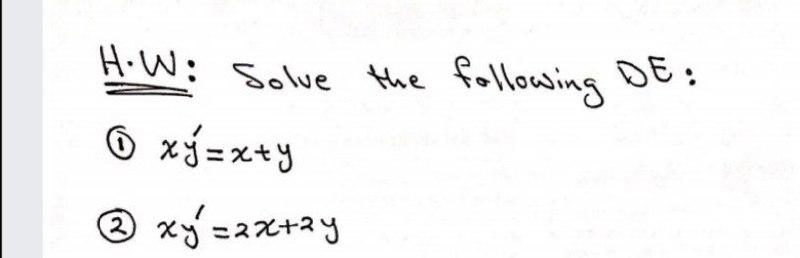 H.W: Solve the following DE:
① xy′=x+y
② xy′=2x+2y